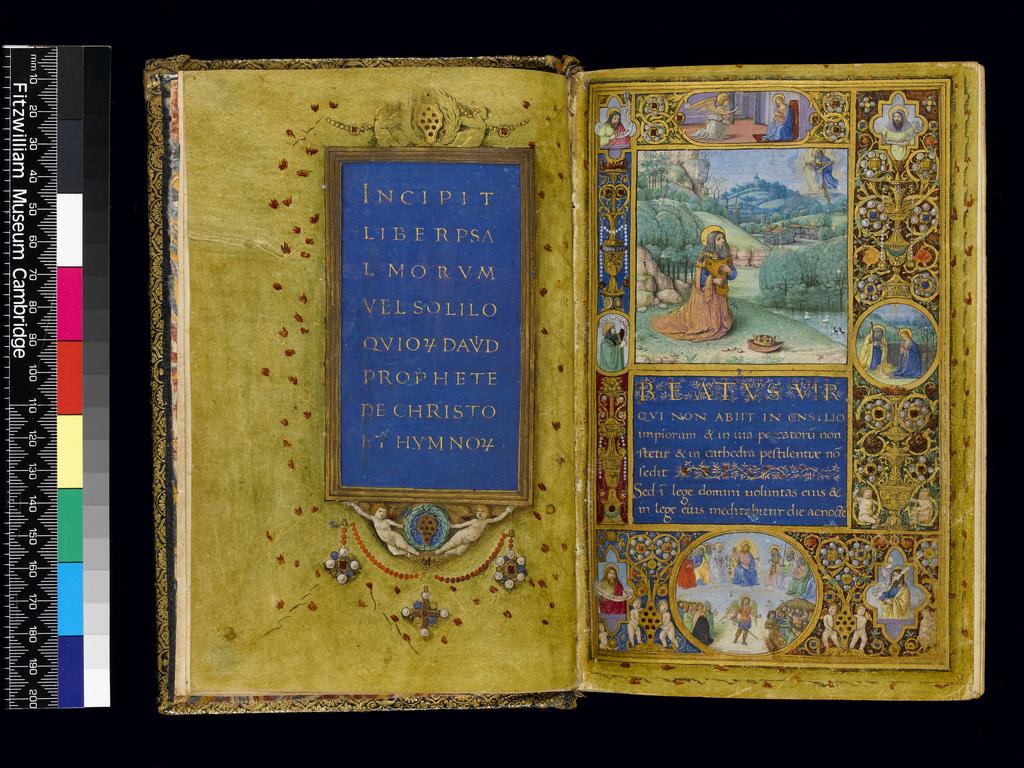 Fitzwilliam Museum Cambridge
mm 10 20 30 40 50 60 70 80 90 100 110 120 130 140 150 160 170 180 190 200
INCIPIT
LIBER PSA
LMORVM
VEL SOLILO
QVIOꝜ DAVD
PROPHETE
DE CHRISTO
ET HYMNOꝜ
BEATVS VIR
QVI NON ABIIT IN CNSILIO
impiorum & in uia peccatorū non
stetit & in cathedra pestilentiæ nō
sedit
Sed ī lege domini uoluntas eius &
in lege eius meditabitur die acnocte